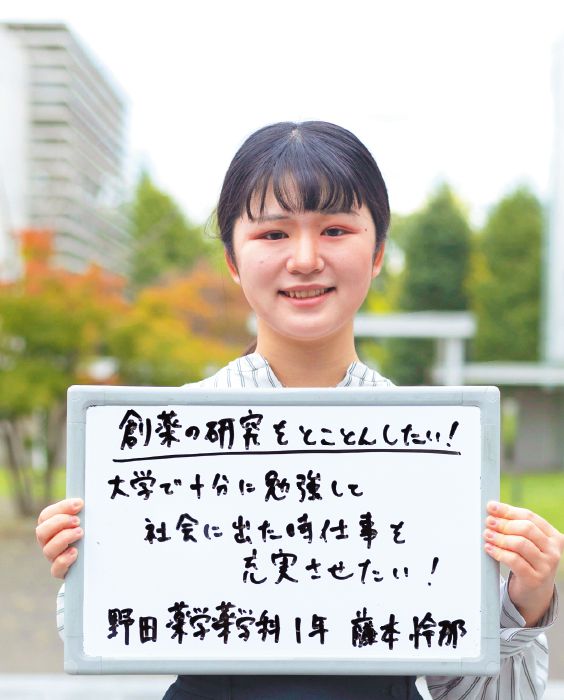 創薬の研究をとことんしたい!
大学で十分に勉強して
社会に出た時仕事を
充実させたい!
野田 薬学薬学科1年 藤本怜那